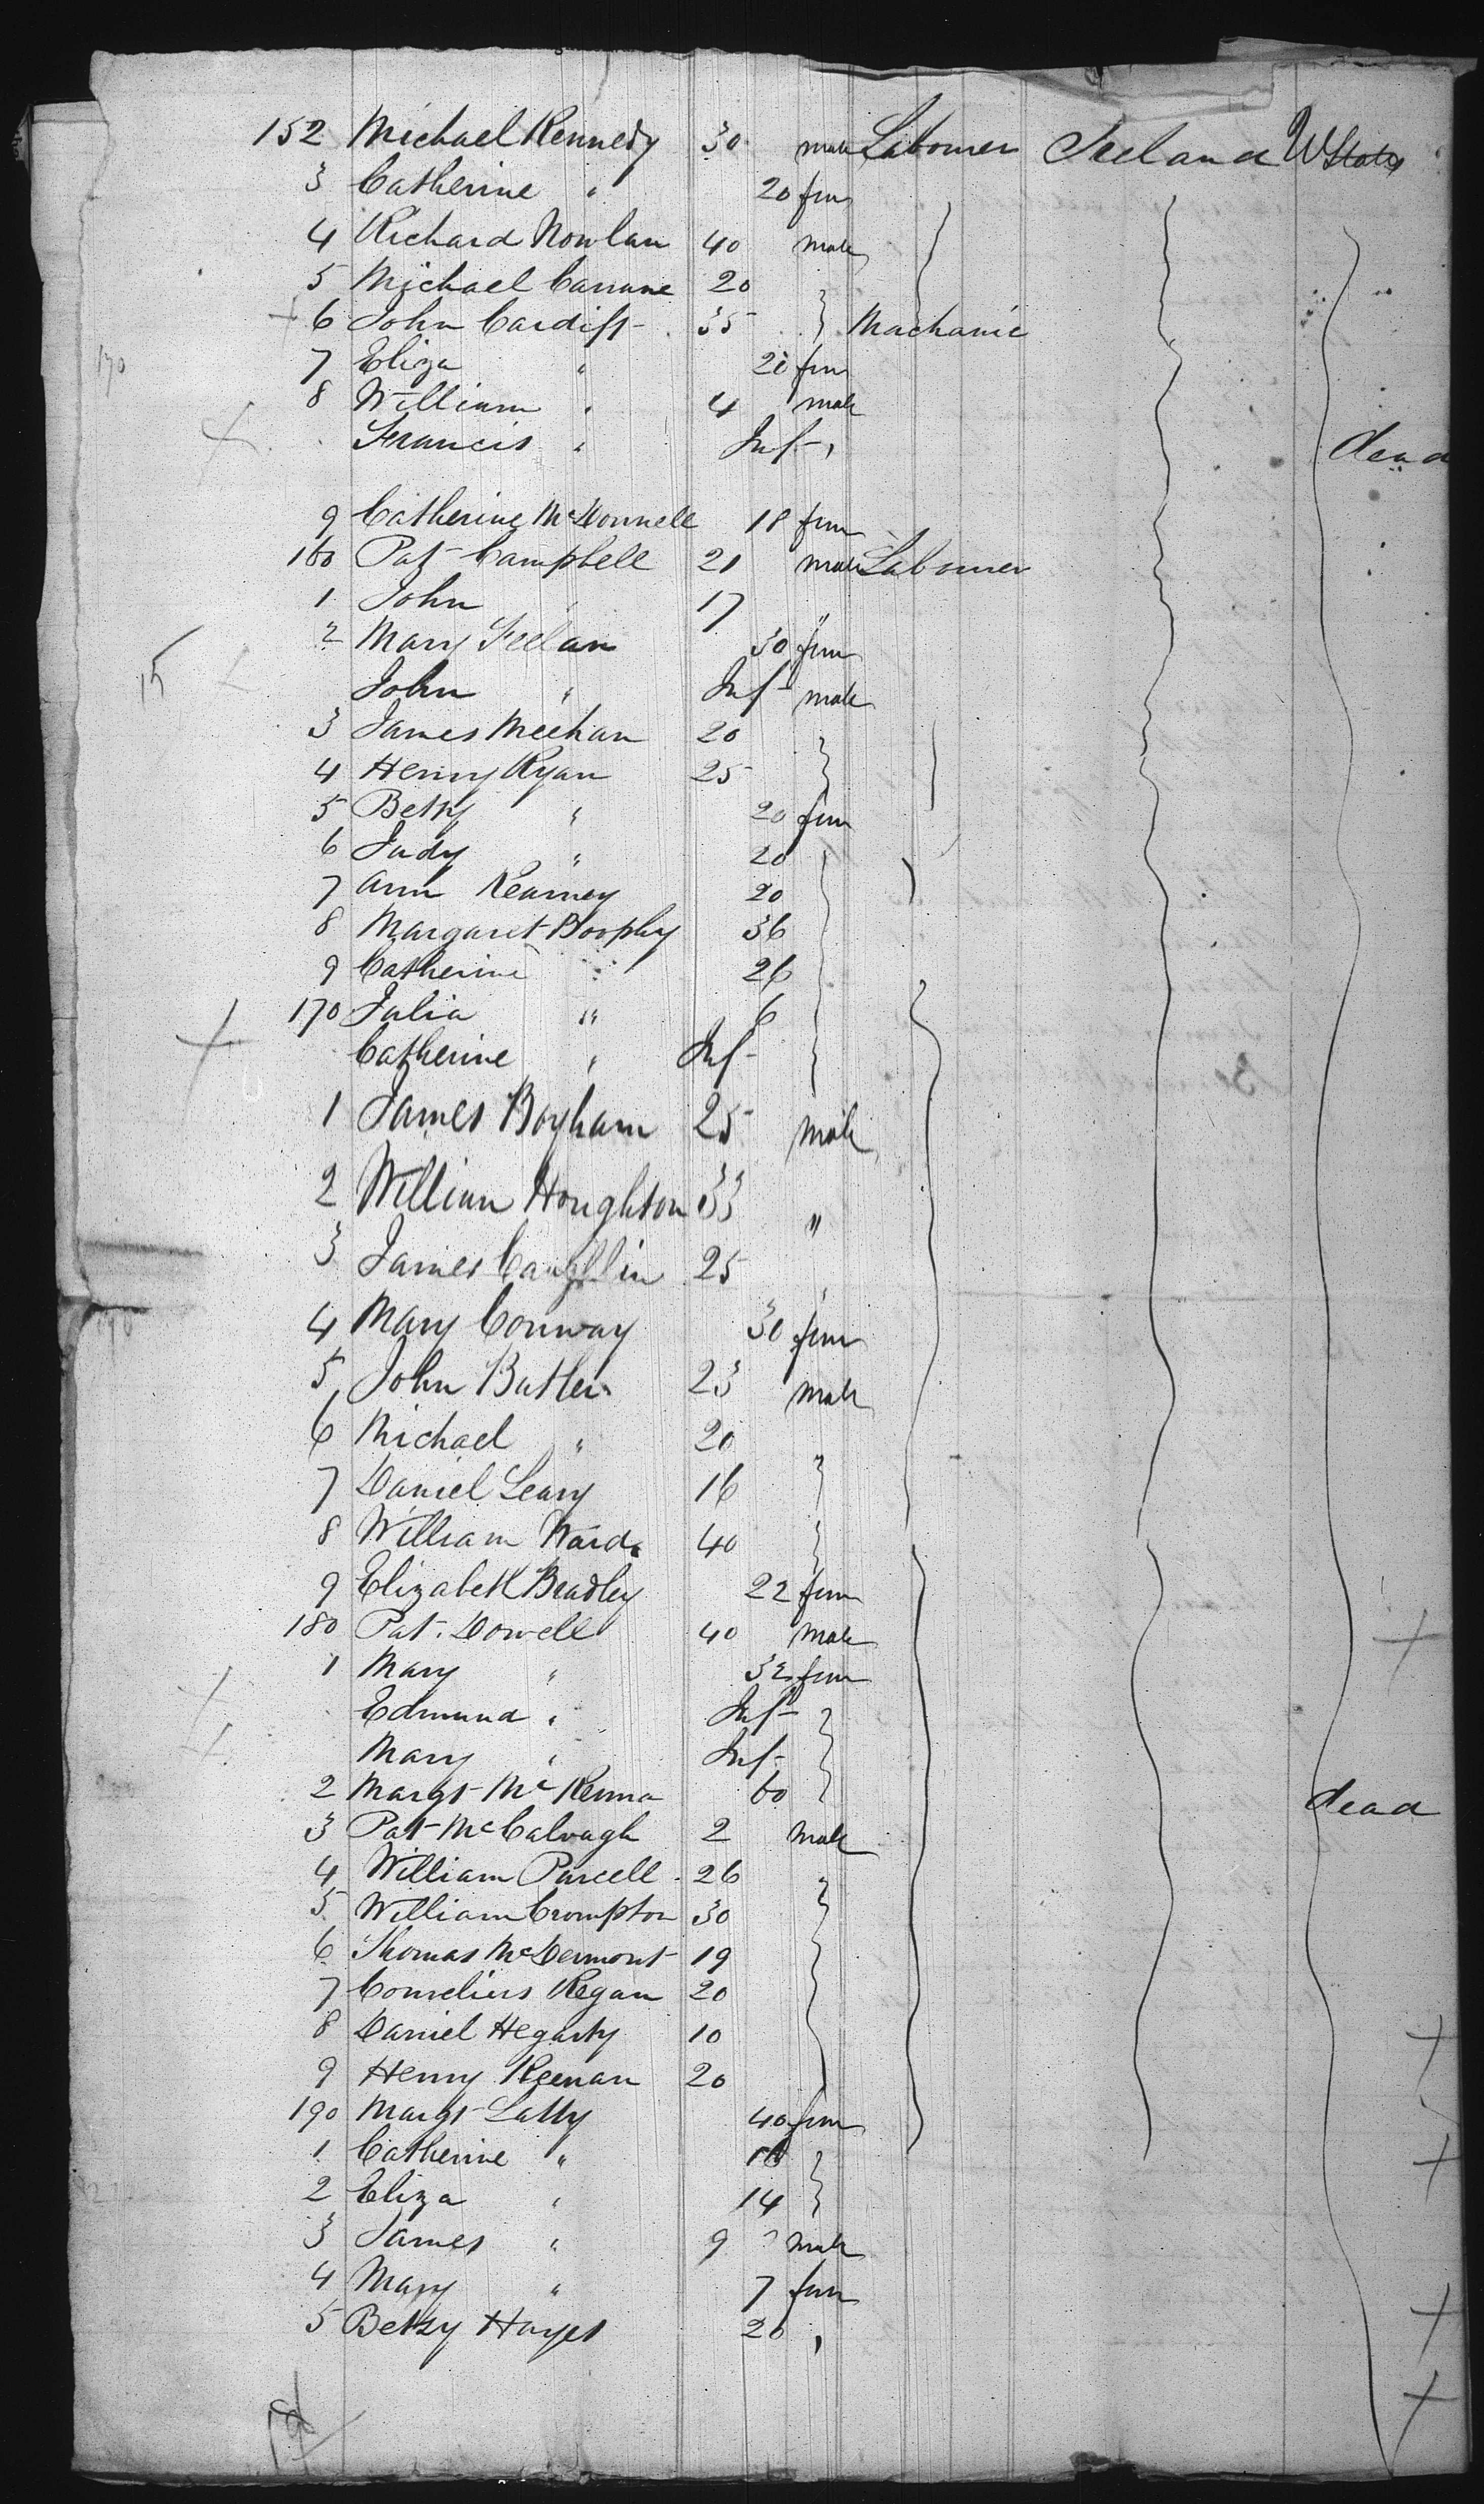 152 Michael Kennedy 30 male Labourer Ireland U States
3 Catherine " 20 fem
4 Richard Nowlan 40 male
5 Michael 20
6 John Cardiff 35 Machanic
7 Eliza " 20 fem
8 William " 4 male
Francis " Inf " dead
9 Catherine McDonnell 18 fem
160 Pat Campbell 21 male Labourer
1 John " 17 "
2 Mary Feelan 30 fem
15
John " Inf male
3 James Meehan 20
4 Henry Ryan 25
5 Betty " 20 fem
6 Judy " 20
7 Ann Kearney 20
8 Margaret 36
9 Catherine " 26
170 Julia " 6
Catherine " Inf
1 James 25 male
2 William Houghton 33 "
3 James Caughlin 25 "
4 Mary Conway 30 fem
5 John Butler 23 male
6 Michael " 20 "
7 Daniel Leary 16
8 William Ward 40
9 Elizabeth Bradley 22 fem
180 Pat. Dowell 40 male
1 Mary " 32 fem
Edmund " Inf
Mary " Inf
2 Margt McKenna 60 dead
3 Pat 2 male
4 William Purcell 26
5 William Crompton 30
6 Thomas McDermont 19
7 Cornelius Regan 20
8 Daniel Hegarty 10
9 Henry Keenan 20
190 Margt Lally 40 fem
1 Catherine "
2 Eliza " 14
3 James " 9 male
4 Mary " 7 fem
5 Betsy Hayes 20 "